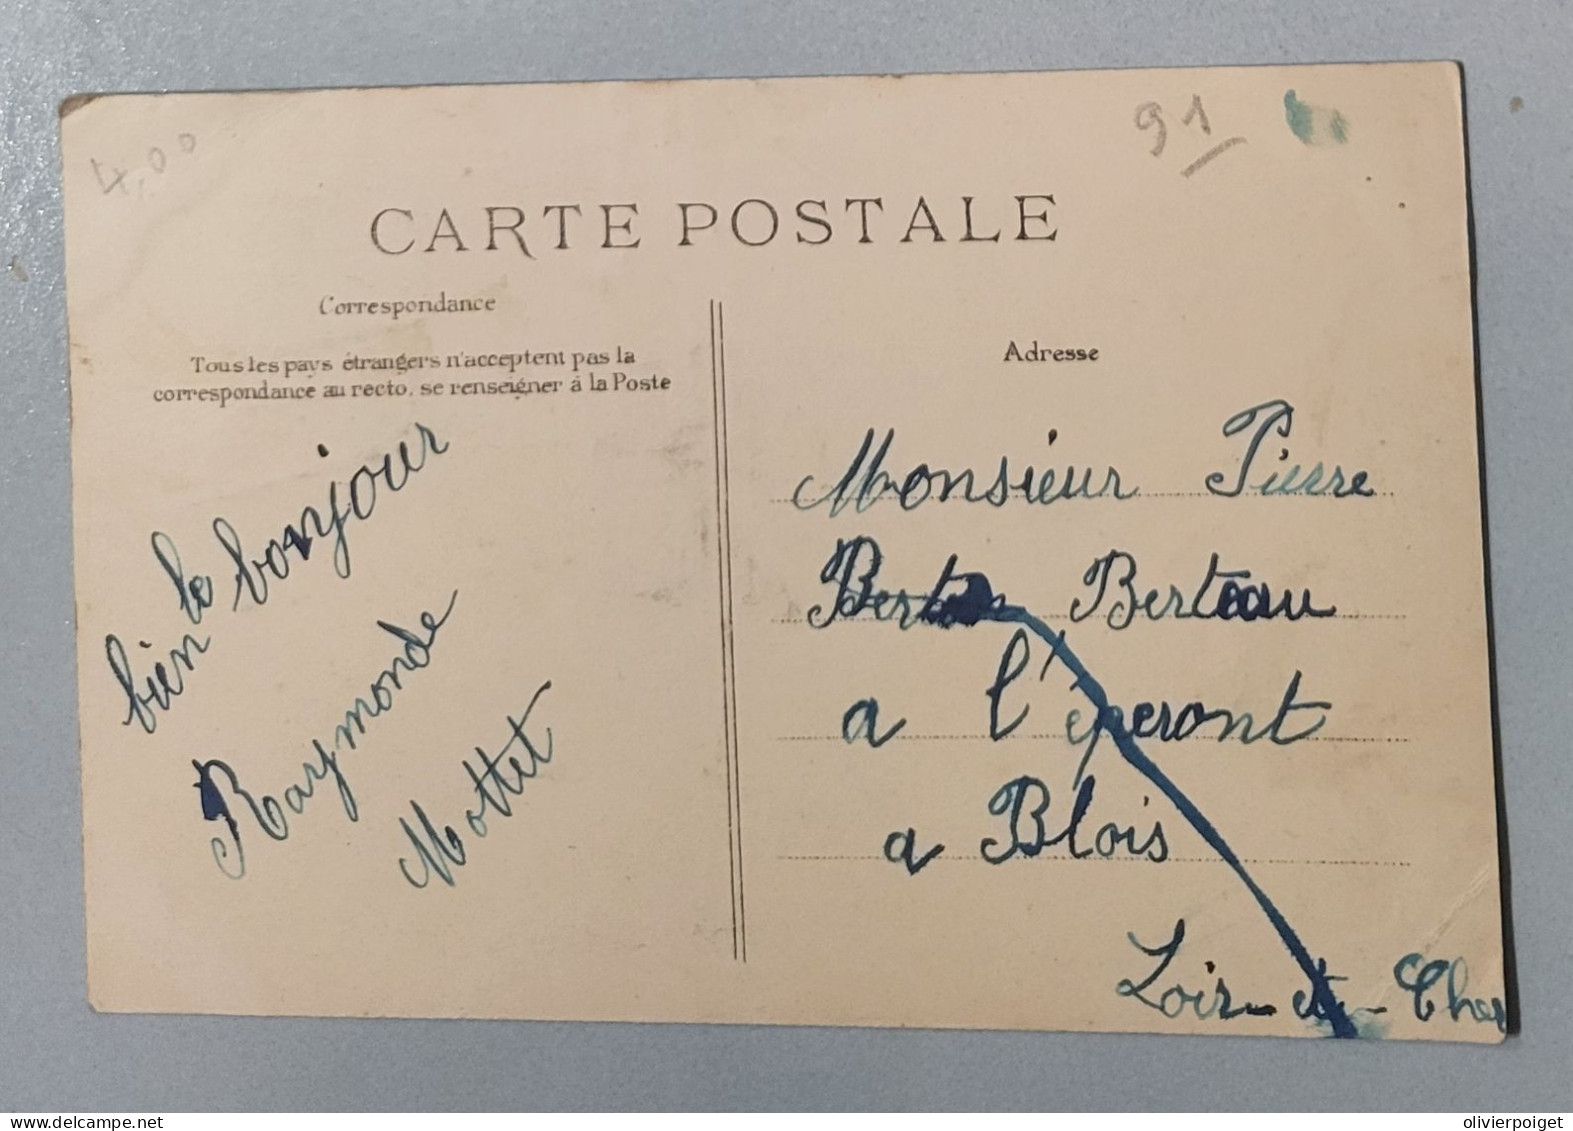 4,00
91
CARTE POSTALE
Correspondance
Tous les pays étrangers n'acceptent pas la
correspondance au recto, se renseigner à la Poste
bien le bonjour
Raymonde
Mottet
Adresse
Monsieur Pierre
Berteau
a l'éperont
a Blois
Loir-et-Cher
olivierpoiget